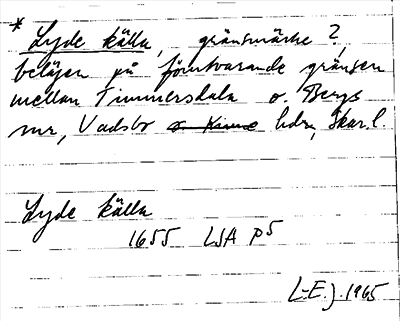 * Lyde källa, gränsmärke ?
belägen på förutvarande gränsen
mellan Timmersdala o. Bergs
snr, Vadsbo o. Kinne hdr, Skar. l.
Lyde källa
1655 LSA P5
L-E. J. 1965